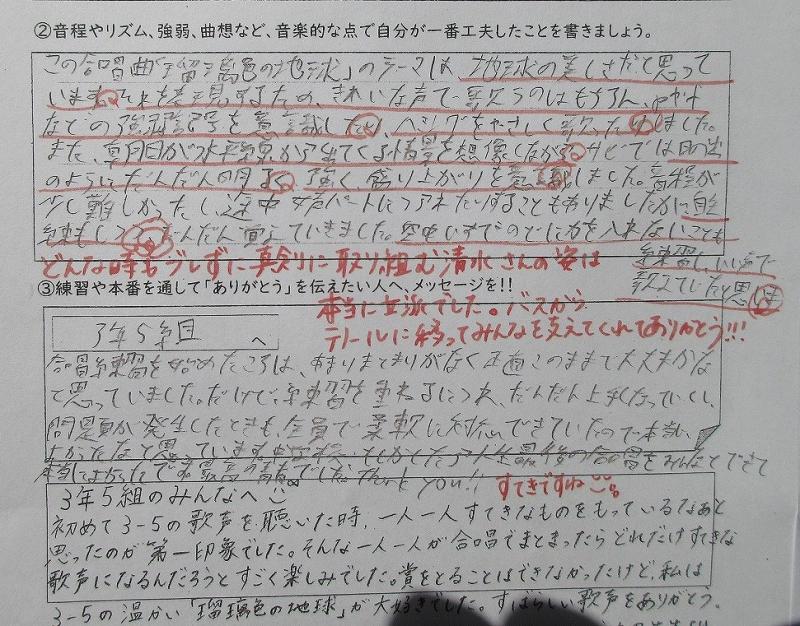 ②音程やリズム、強弱、曲想など、音楽的な点で自分が一番工夫したことを書きましょう。
この合唱曲「瑠璃色の地球」のテーマは、地球の美しさだと思って
います。それを表現するため、きれいな声で歌うのはもちろん、pやf
などの強弱記号を意識したり、ハミングをやさしく歌ったりしました。
また、朝日が水平線から出てくる情景を想像しながら、サビでは日の出
のようにだんだん明るく、強く、盛り上がりを意識しました。音程が
少し難しかったし、途中
だんだん覚えていきました。
どんな時もブレずに真剣に取り組む清水さんの姿は
本当に立派でした。バスから
テノールに移ってみんなを支えてくれてありがとう!!!
③練習や本番を通して「ありがとう」を伝えたい人へ、メッセージを!!
3年5組 へ
合唱練習を始めたころは、あまりまとまりがなく正直このままで大丈夫かな
て思っていました。だけど、練習を重ねるにつれ、だんだん上手くなっていくし、
問題が発生したときも、全員で柔軟に対応できていたので本当に
よかったなと思っています。
すてきですね
3年5組のみんなへ
初めて3-5の歌声を聴いた時、一人一人すてきなものをもっているなぁと
思ったのが第一印象でした。そんな一人一人が合唱でまとまったらどれだけすてきな
歌声になるんだろうとすごく楽しみでした。賞をとることはできなかったけど、私は
3-5の温かい「瑠璃色の地球」が大好きでした。すばらしい歌声をありがとう。